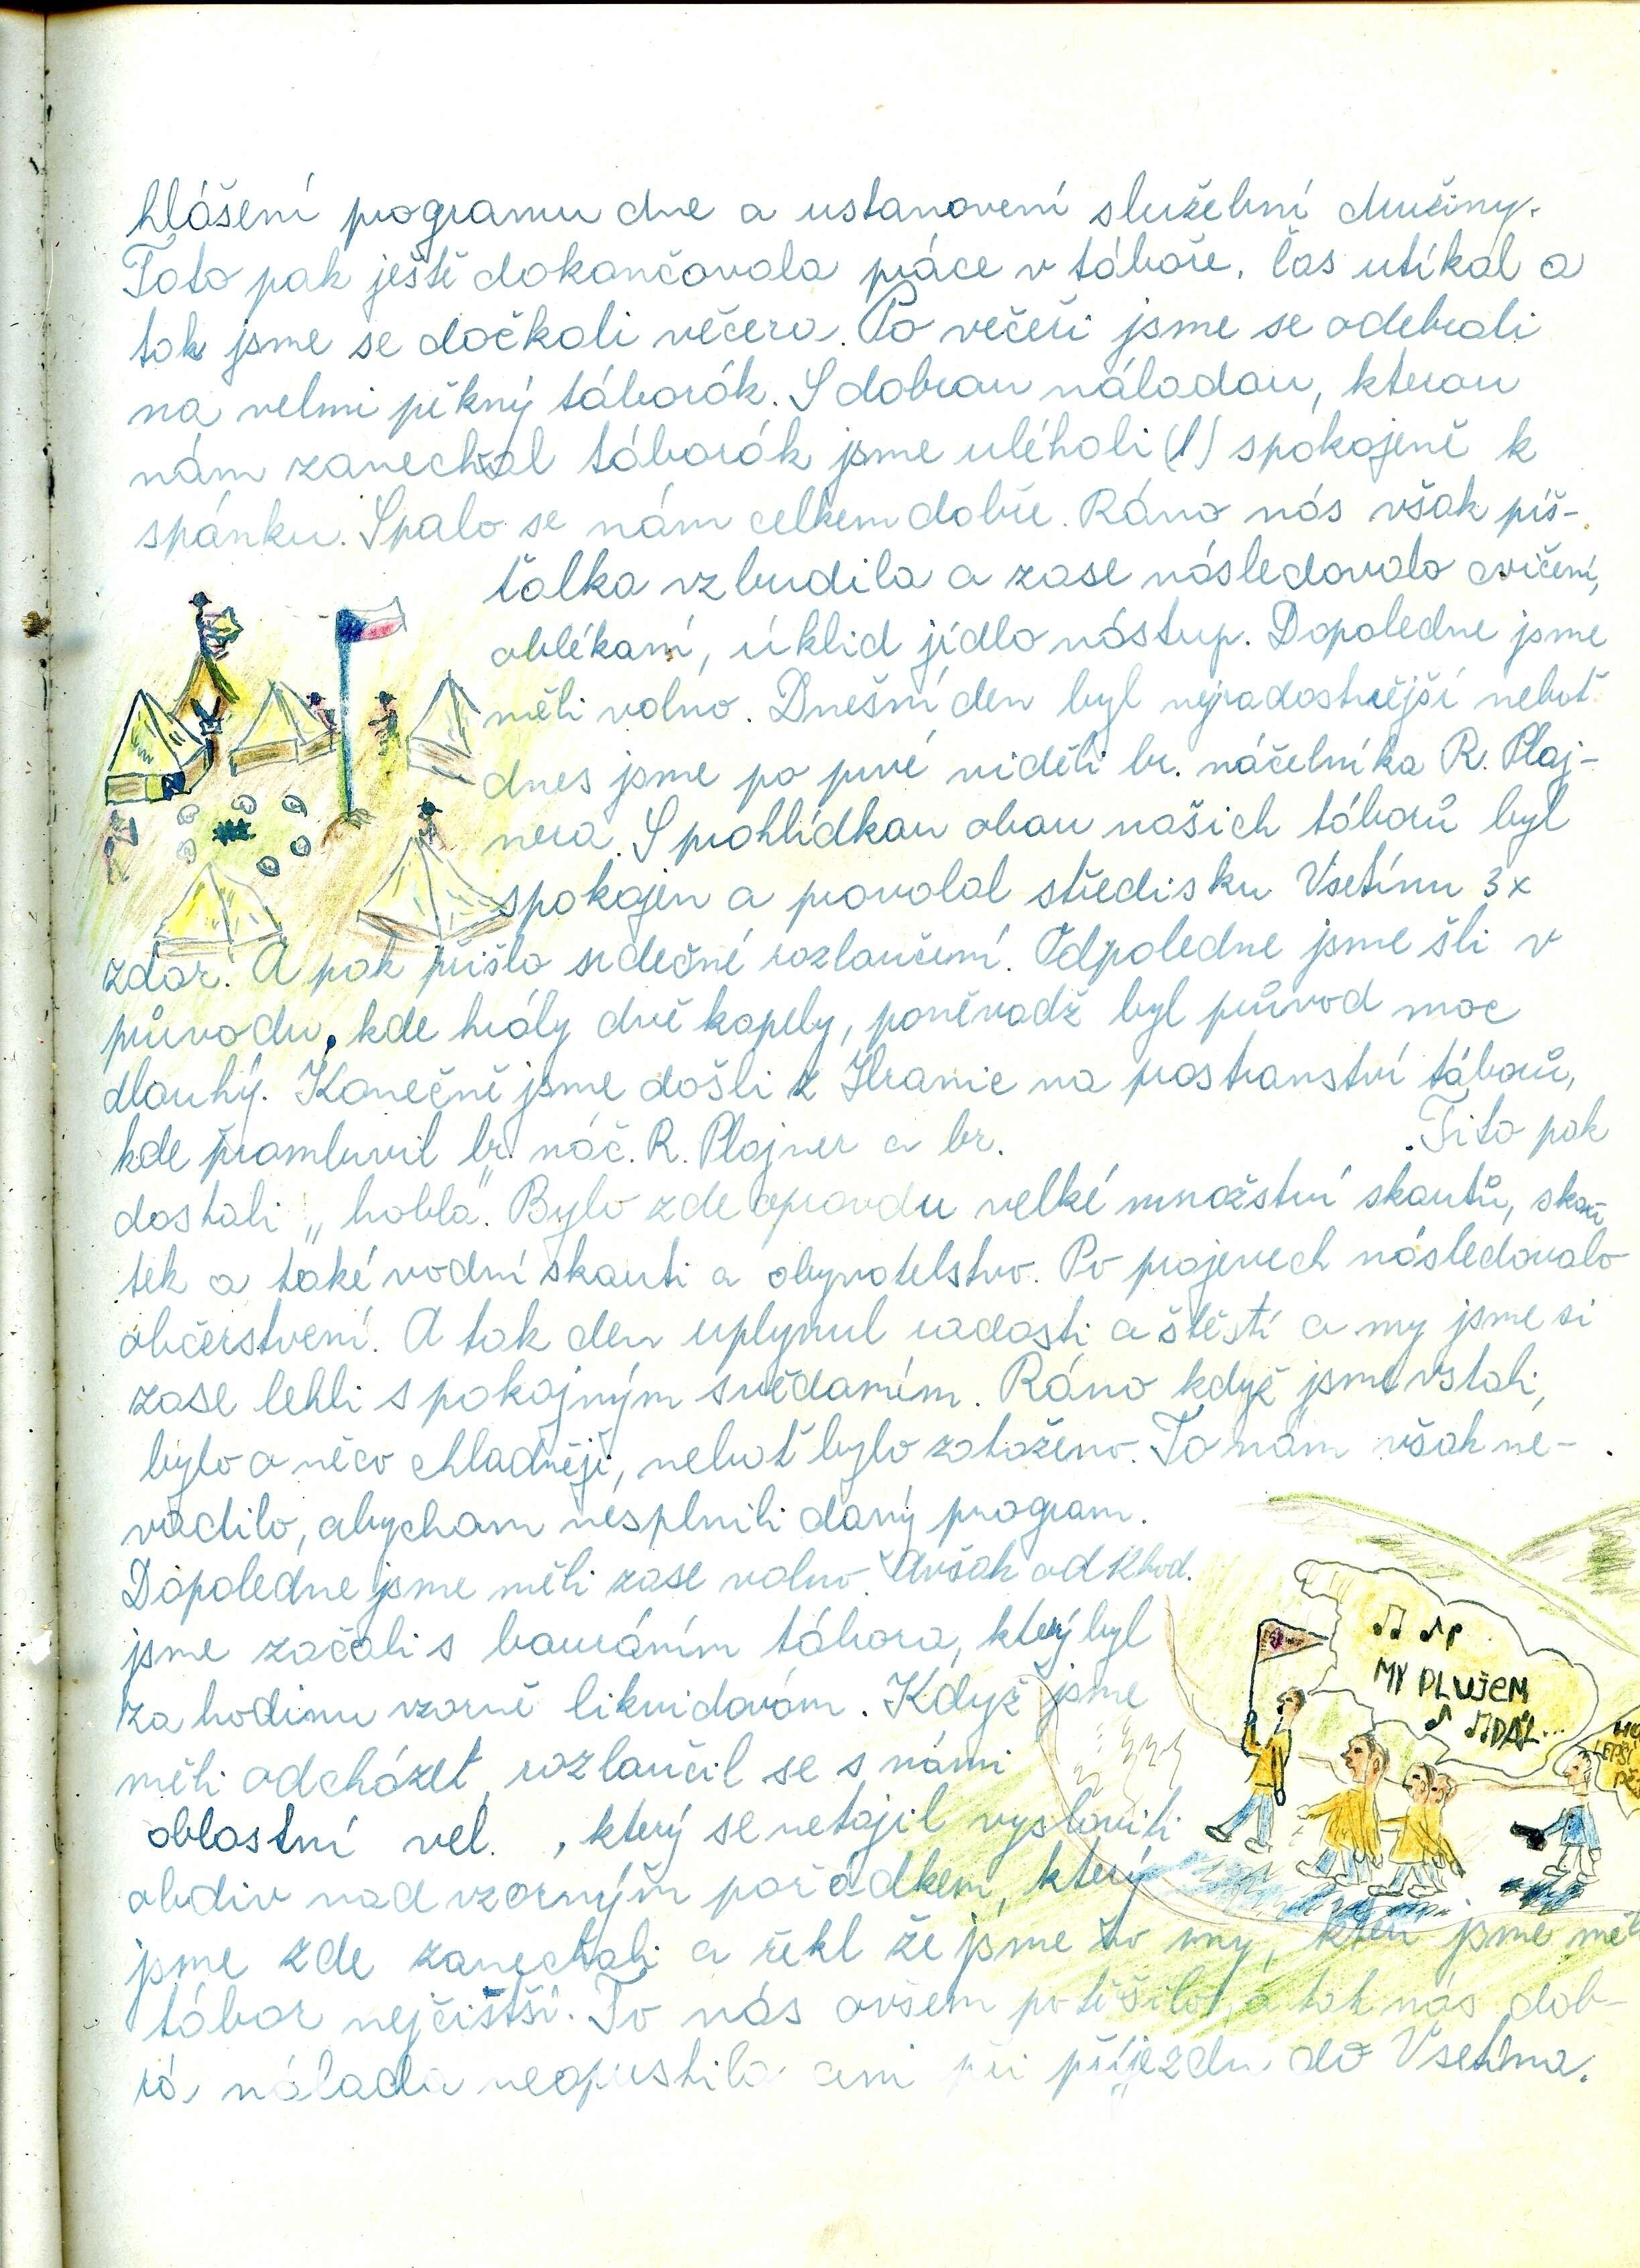 hlášení programu dne a ustanovení služební družiny.
Tato pak ještě dokančovala práce v táboře. Čas utíkal a
tak jsme se dočkali věčera. Po večeři jsme se odebrali
na velmi pěkný táborák. S dobrou náladou, kterou
nám zanechal táborák jsme uléhali (1) spokojeně k
spánku. Spalo se nám celkem dobře. Ráno nás však píš-
ťalka vzbudila a zase následovalo cvičení,
oblékaní, úklid jídlo nástup. Dopoledne jsme
měli volno. Dnešní den byl nejradostnější neboť
dnes jsme po prvé viděli br. náčelníka R. Plaj-
nera. S prohlídkou obou našich táborů byl
spokojen a provolal středisku Vsetínu 3x
zdar. A pak přišlo srdečné rozloučení. Odpoledne jsme šli v
průvodu, kde hrály dvě kapely, poněvadž byl průvod moc
dlouhý. Konečně jsme došli z Hranic na prostranství táborů,
kde promluvil br. náč. R. Plajner a br. . Tito pak
dostali „hobla". Bylo zde opravdu velké množství skautů, skau
tek a také vodní skauti a obyvatelstvo. Po projevech následovalo
občerstvení. A tak den uplynul radosti a štěstí a my jsme si
zase lehli s pokojným svědomím. Ráno když jsme vstali,
bylo o něco chladněji, neboť bylo zataženo. To nám však ne-
vadilo, abychom nesplnili daný program.
Dopoledne jsme měli zase volno. Avšak od hod.
jsme začali s bouráním tábora, který byl
za hodinu vzorně likvidován. Když jsme
měli odcházet, rozloučil se s námi
oblastní vel. , který se netajil vysloviti
obdiv nad vzorným pořádkem, který
jsme zde zanechali a řekl že jsme to my, kteří jsme měli
tábor nejčistší. To nás ovšem potěšilo, a tak nás dob-
rá nálada neopustila ani při příjezdu do Vsetína.
MY PLUJEM
DÁL...